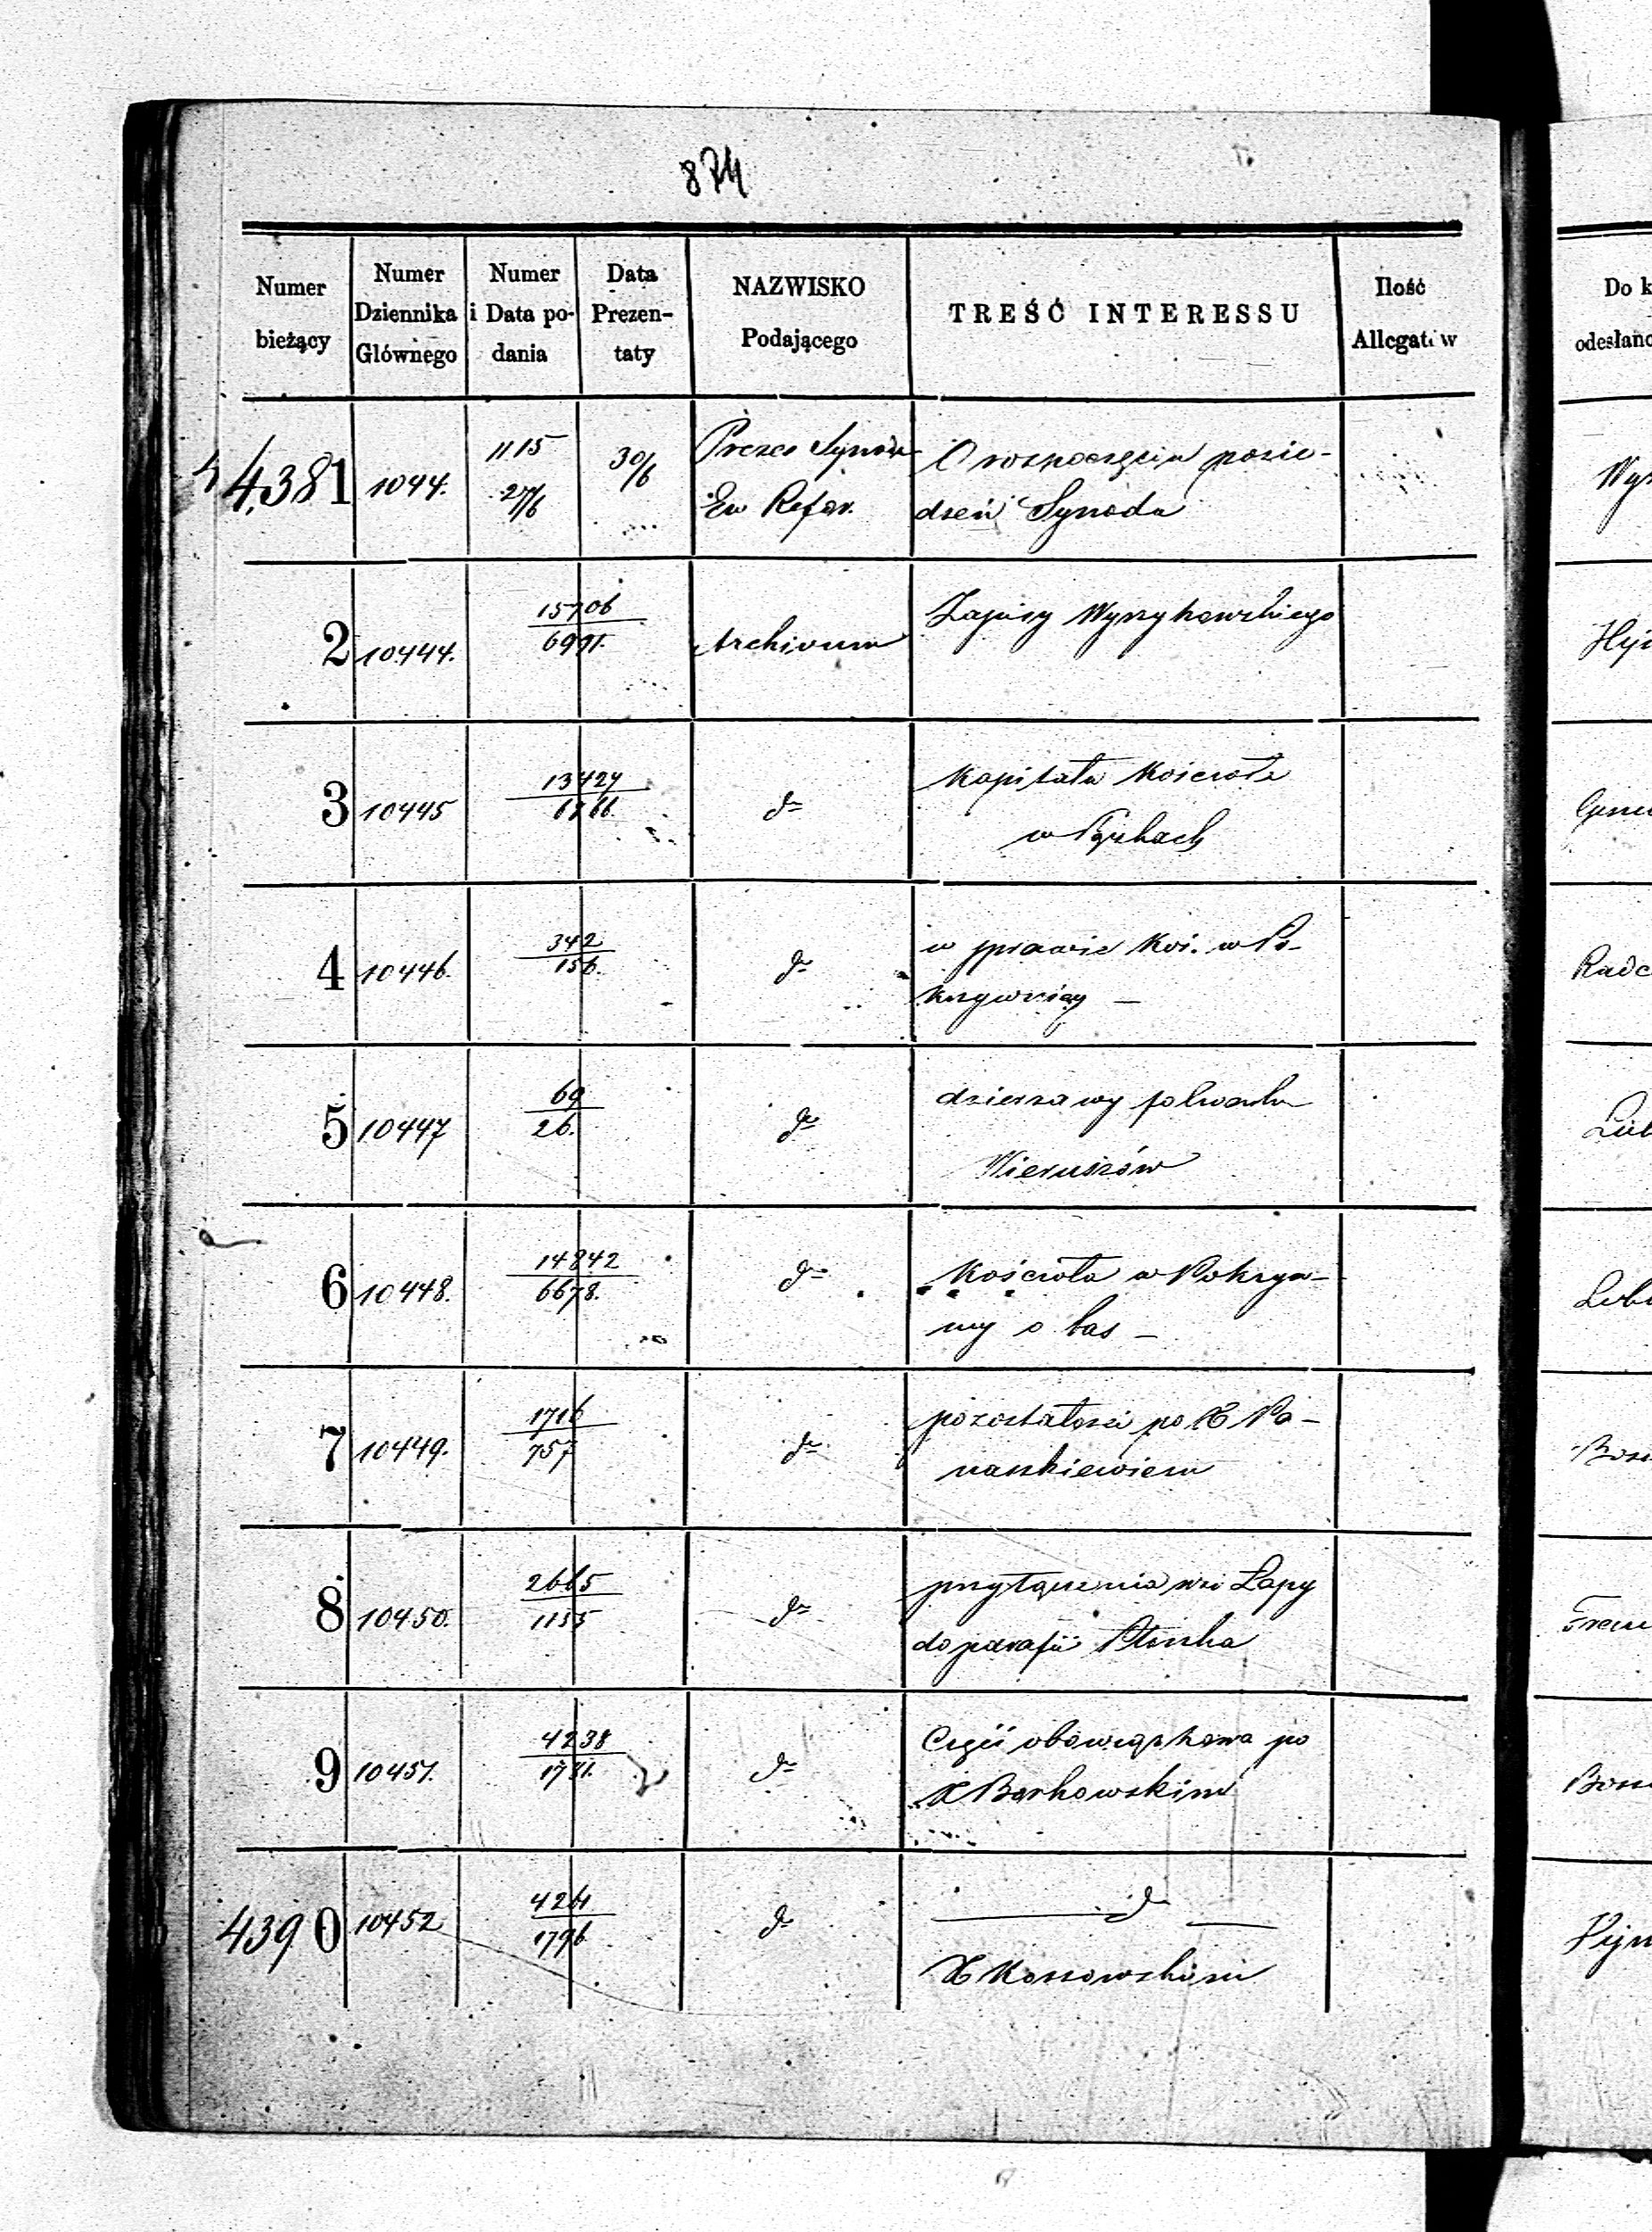 874
Numer bieżący
Numer Dziennika Głównego
Numer i Data podania
Data Prezentaty
NAZWISKO Podającego
TREŚĆ INTERESSU
Ilość Allegatów
Do k
odesłano
4,381 1044. 1115 27/6 30/6 Prezes Synodu O rozpoczęciu posie-
Ew Refor. dzeń Synodu
2 10444. 15706 / 6991. Archivum Zapisy Wyszykowskiego
3 10445 13427 / 6766. do Kapitału Kościoła
w
4 10446. 342 / 156. do w sprawie Koś. w Po-
krzywnicy —
5 10447 69 / 26. do dzierżawy folwarku
Wieruszów
6 10448. 14842 / 6678. do Kościoła w Pokrzyw-
nicy o las —
7 10449. 1716 / 757 do pozostałości po X Pa-
naszkiewiczu
8 10450. 2665 / 1155 do przyłączenia wsi Łapy
do parafii Płonka
9 10451. 4238 / 1781. do Część obowiązkowa po
X Borkowskim
4390 10452 4261 / 1796. do — do —
X Kossowskim